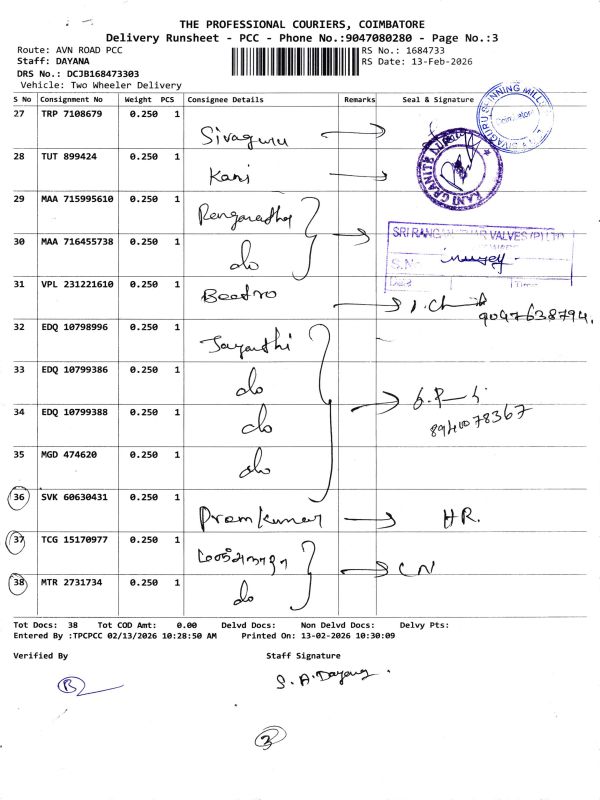 THE PROFESSIONAL COURIERS, COIMBATORE
Delivery Runsheet - PCC - Phone No.:9047080280 - Page No.:3
Route: AVN ROAD PCC
RS No.: 1684733
Staff: DAYANA
RS Date: 13-Feb-2026
DRS No.: DCJB168473303
Vehicle: Two Wheeler Delivery
S No Consignment No Weight PCS Consignee Details Remarks Seal & Signature
27 TRP 7108679 0.250 1 Sivaguru
28 TUT 899424 0.250 1 Kani
KANI GRANITE
29 MAA 715995610 0.250 1
SRI VALVES (P) LTD
30 MAA 716455738 0.250 1 do
31 VPL 231221610 0.250 1
9047638794.
32 EDQ 10798996 0.250 1 Jayanthi
33 EDQ 10799386 0.250 1 do
34 EDQ 10799388 0.250 1 do
8940078367
35 MGD 474620 0.250 1 do
36 SVK 60630431 0.250 1 Premkumar HR.
37 TCG 15170977 0.250 1
CN
38 MTR 2731734 0.250 1 do
Tot Docs: 38 Tot COD Amt: 0.00 Delvd Docs: Non Delvd Docs: Delvy Pts:
Entered By :TPCPCC 02/13/2026 10:28:50 AM Printed On: 13-02-2026 10:30:09
Verified By Staff Signature
B
S. A. Dayana.
3